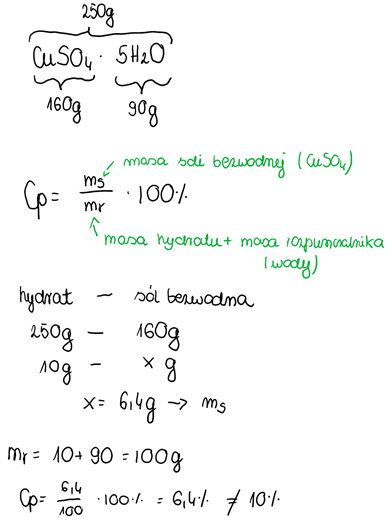 250g
CuSO4 · 5H2O
160g 90g
masa soli bezwodnej (CuSO4)
Cp = ms/mr · 100%
masa hydratu + masa rozpuszczalnika
(wody)
hydrat – sól bezwodna
250g – 160g
10g – x g
x = 6,4g → ms
mr = 10 + 90 = 100g
Cp = 6,4/100 · 100% = 6,4% ≠ 10%